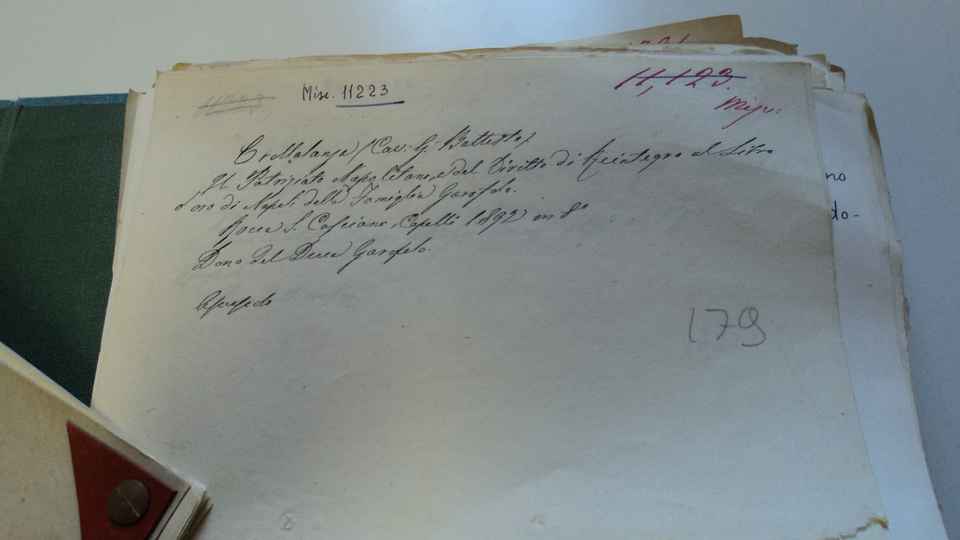 Misc. 11223
11,123.
Misc.
Crollalanza (Cav. G. Battista)
Il Patriziato Napolitano, e del Diritto di Reintegro al Libro
d'oro di Napoli della Famiglia Garofalo.
Rocca S. Casciano, Capelli 1892 in 8°
Dono del Duca Garofalo.
179
no
do-